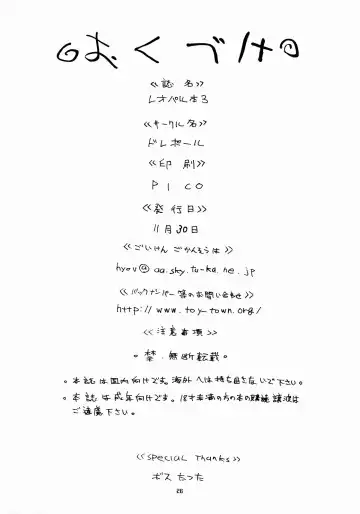 おくづけ
《誌名》
レオパル本3
《サークル名》
ドレポール
《印刷》
PICO
《発行日》
11月30日
《ごいけん ごかんそうは》
hyou@aa.sky.tu-ka.ne.jp
《バックナンバー等のお問い合わせ》
http://www.toy-town.org/
《注意事項》
・禁・無断転載。
・本誌は国内向けです。海外へは持ち出さないで下さい。
・本誌は成年向けです。18才未満の方の本の購読譲渡は
ご遠慮下さい。
《special Thanks》
ボス ちった
28